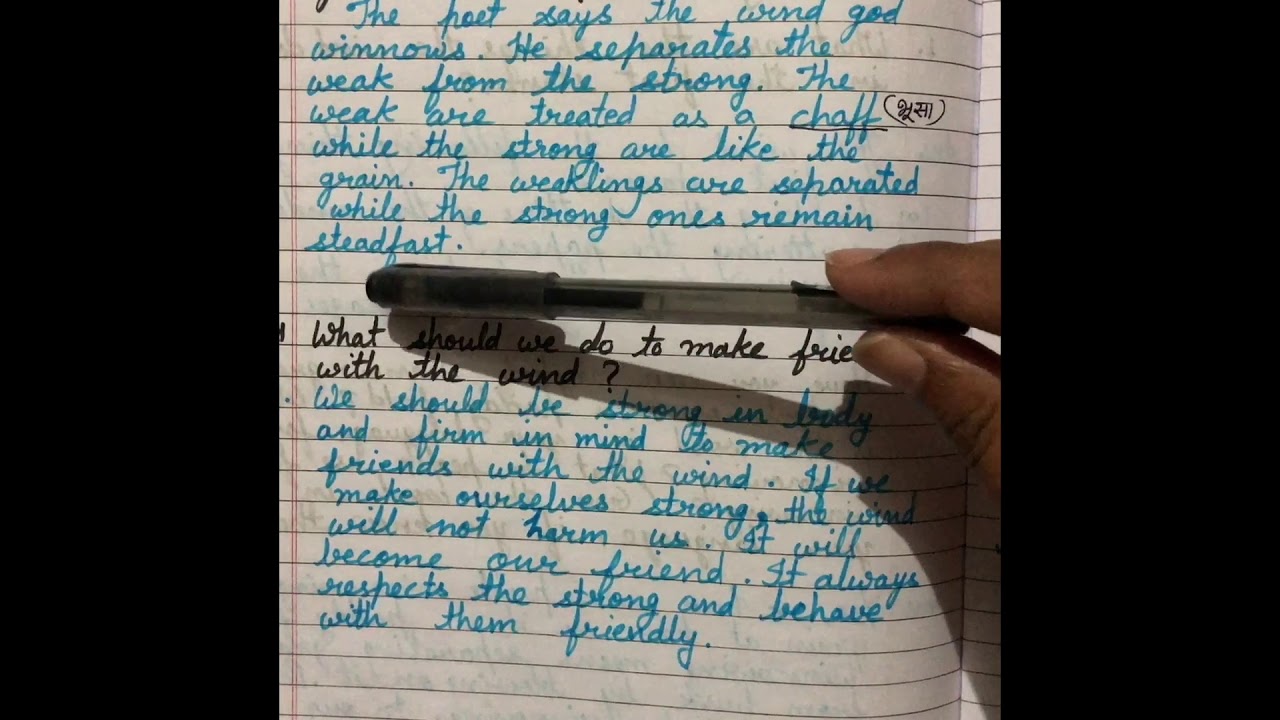 The poet says the wind god
winnows. He separates the
weak from the strong. The
weak are treated as a chaff (भूसा)
while the strong are like the
grain. The weaklings are separated
while the strong ones remain
steadfast.
What should we do to make frie
with the wind ?
We should be strong in body
and firm in mind to make
friends with the wind. If we
make ourselves strong, the wind
will not harm us. It will
become our friend. It always
respects the strong and behave
with them friendly.